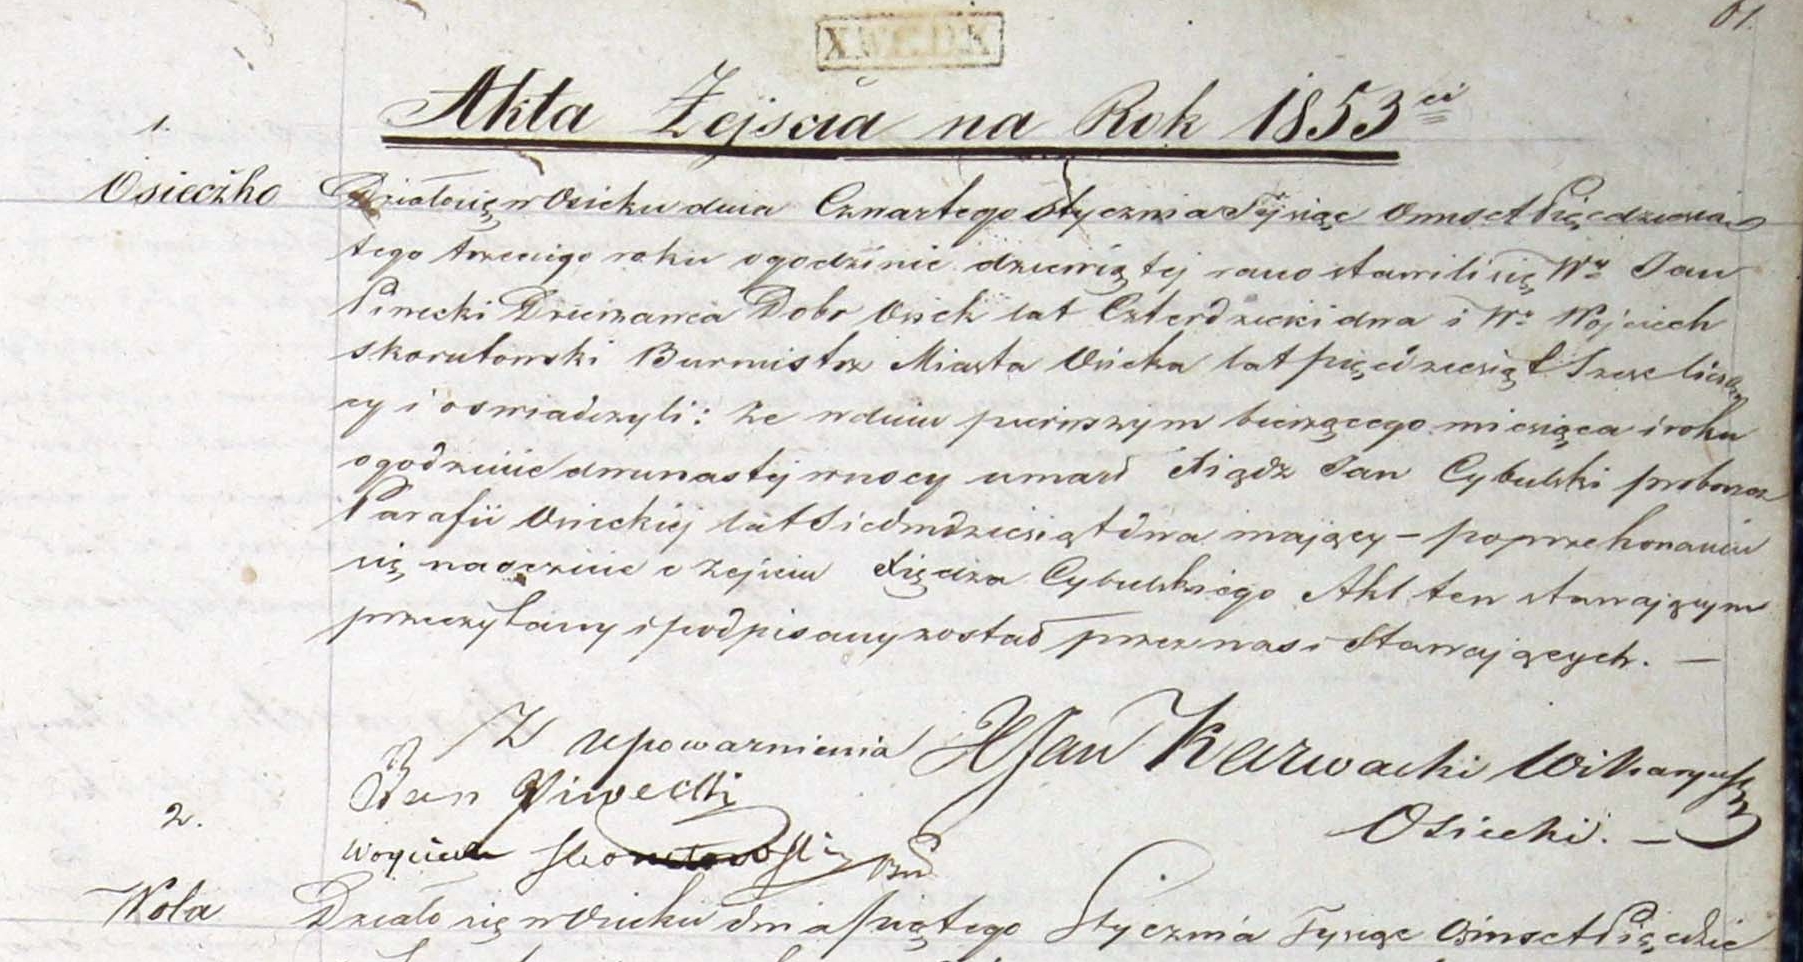 61.
Akta Zejscia na Rok 1853ci
1.
Osieczko
Działosię w Osieku dnia Czwartego Stycznia Tysiąc Osmset Pięcdziesią
tego trzeciego roku ogodzinie dziewiątej rano stawili się Wy Jan
Piwecki Dzierzawca Dobr Osiek lat Czterdziesci dwa i Wy Wojciech
Skorutowski Burmistrz Miasta Osieka lat pięcdziesiąt Szesc licżą
cy i oswiadczyli: że w dniu pierwszym bieżącego miesiąca i roku
ogodzinie dwunastej w nocy umarł Xiądz Jan Cybulski proboszcz
Parafii Osieckiej lat Siedmdziesiąt dwa mający – po przekonaniu
się naocznie o Zejsciu Xiędza Cybulskiego Akt ten stawającym
przeczytany i podpisany został przez nas i Stawających. —
Z upoważnienia X Jan Karwacki Wikaryusz
Jan Piwecki
Osiecki. —
Woyciech Skorutowski
2.
Wola
Działo się w Osieku dnia piątego Stycznia Tysiąc Osmset Pięcdzie